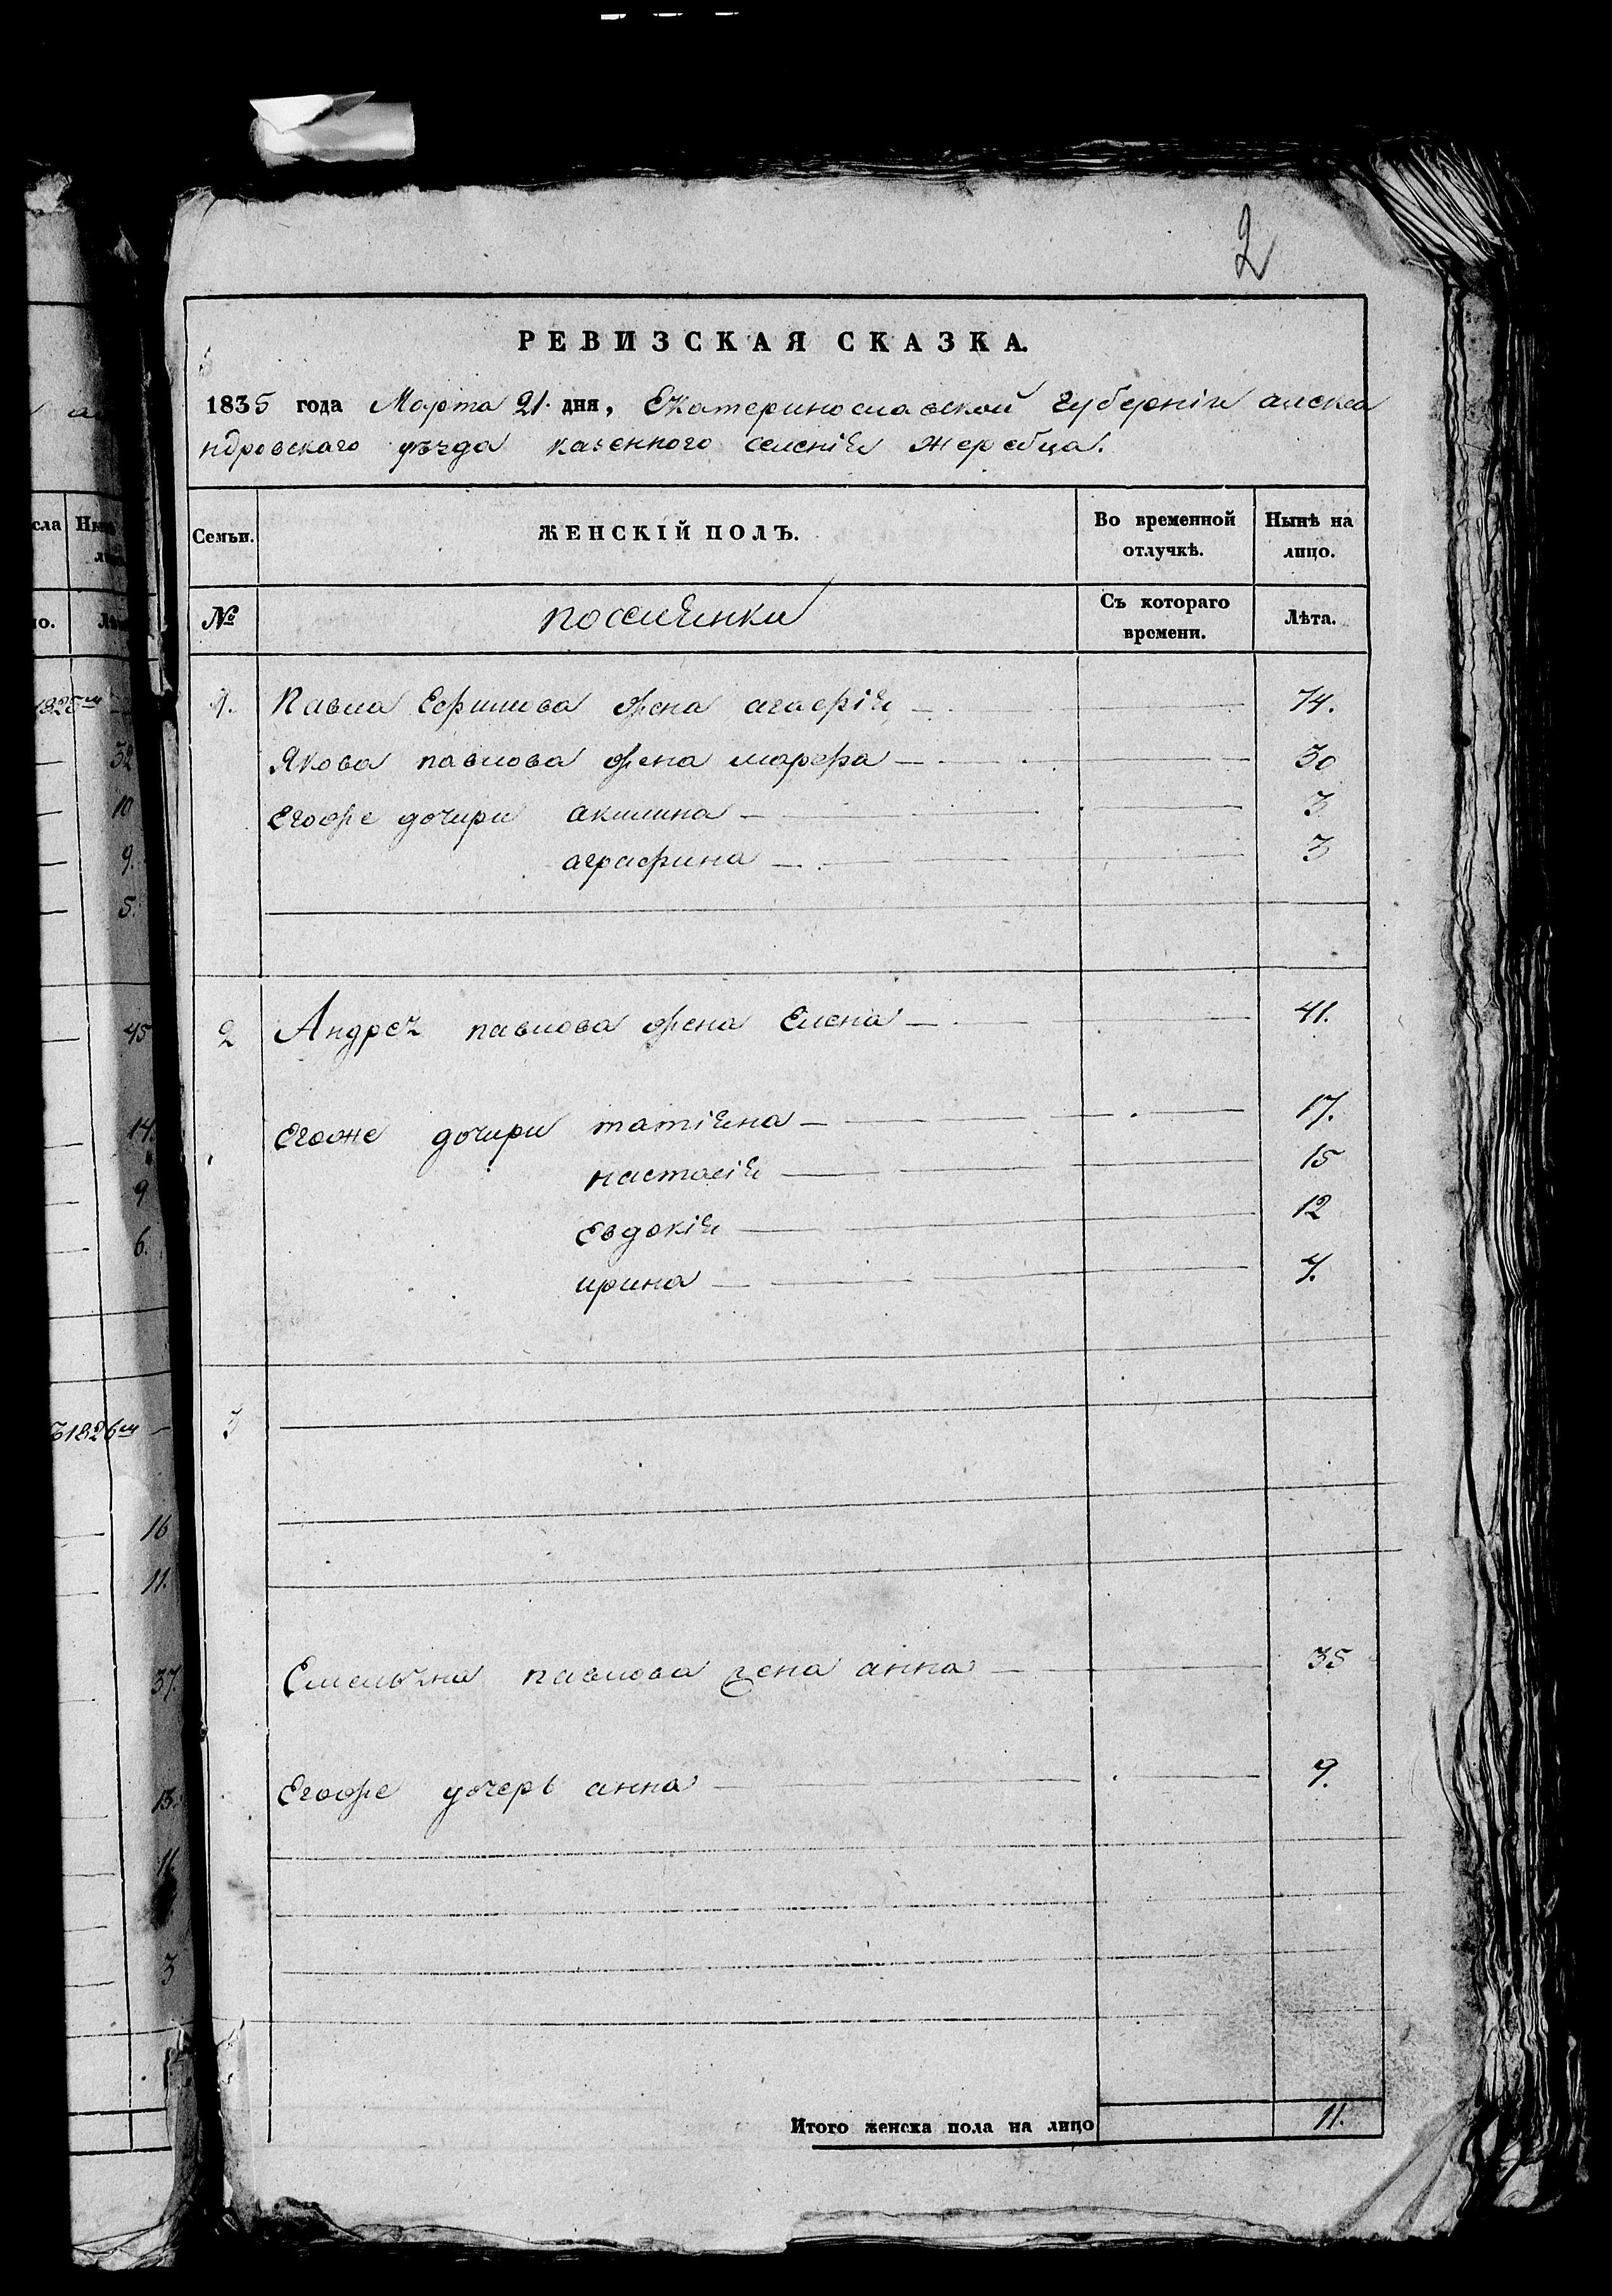 2
РЕВИЗСКАЯ СКАЗКА.
1835 года Марта 21. дня, Екатеринославской губернiи алекса
ндровскаго уѣзда казенного селенiя жеребца.
Семьи. ЖЕНСКІЙ ПОЛЪ. Во временной отлучкѣ. Нынѣ на лицо.
№ поселянки Съ котораго времени. Лѣта.
1. Павла Ефимова жена агафiя — 74.
Якова павлова жена марфа — 30
Егоже дочири акилина — 3
аграфина — 3
2 Андрея павлова жена Елена — 41.
Егоже дочири татiяна — 17.
настасiя — 15
Евдокiя — 12
ирина — 7.
3
Емельяна павлова жена анна — 35
Егоже дочерь анна — 9.
Итого женска пола на лицо 11.
сла
ло.
1825го
32
10
9.
5.
45
14.
9
6.
1826го —
16
11.
37
13.
11
3